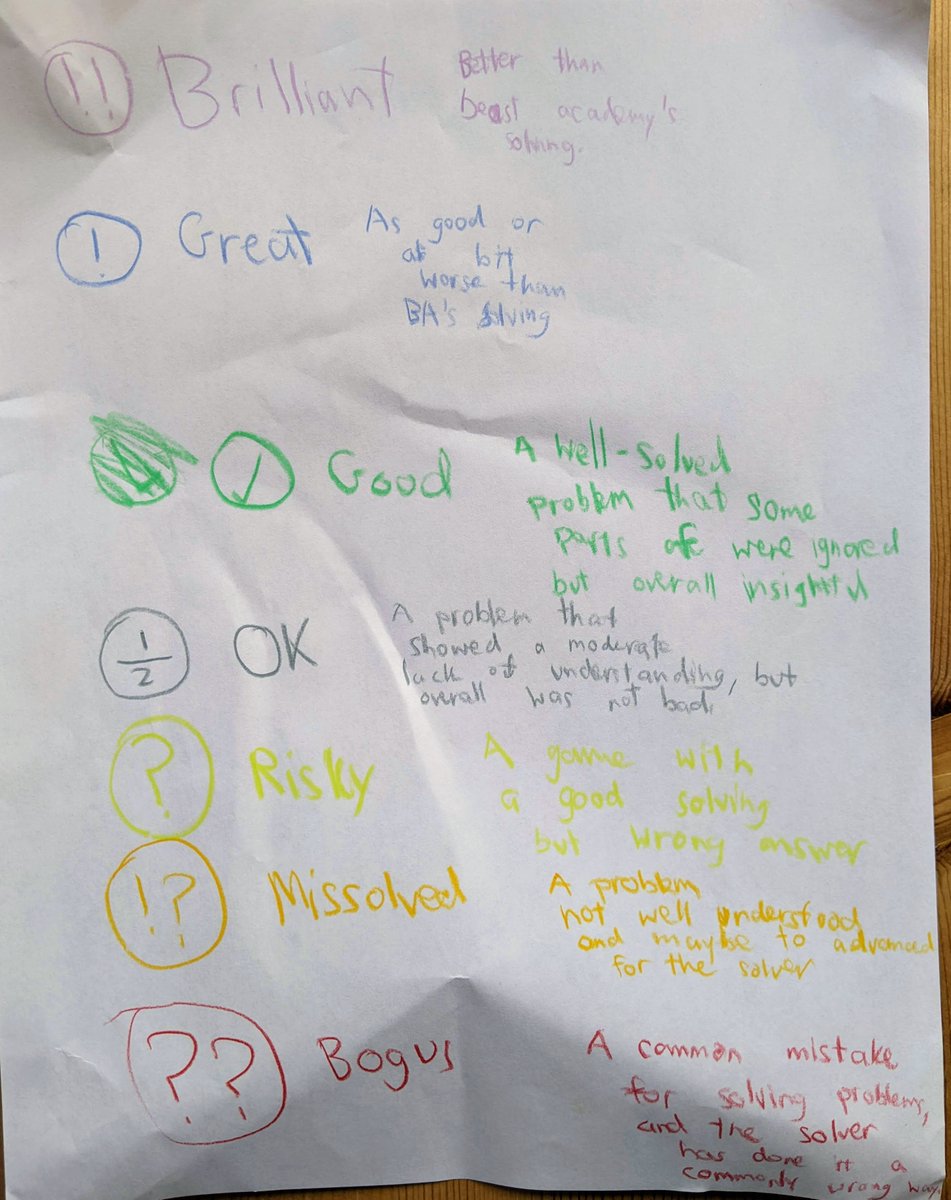 !! Brilliant Better than
beast academy's
solving.
! Great As good or
at bit
worse than
BA's solving
✓ Good A well-solved
problem that some
parts of were ignored
but overall insightful
1/2 OK A problem that
showed a moderate
lack of understanding, but
overall was not bad.
? Risky A game with
a good solving
but wrong answer
!? Missolved A problem
not well understood
and maybe to advanced
for the solver
?? Bogus A common mistake
for solving problems,
and the solver
has done it a
commonly wrong way